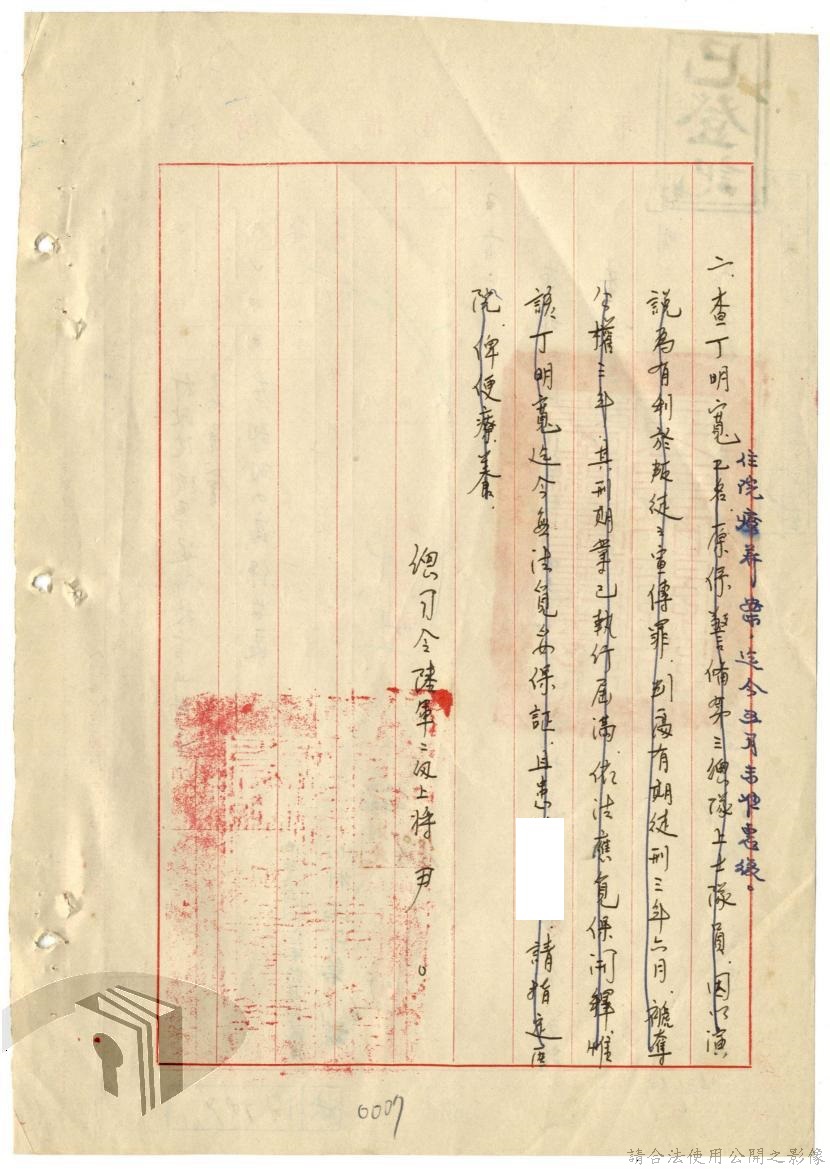 已登記
住院療養案，迄今五月未准惠復。
二、查丁明寬一名，原保警備第三總隊上士隊員，因以演
說為有利於叛徒之宣傳罪，判處有期徒刑三年六月，褫奪
公權三年，其刑期業已執行屆滿，依法應覓保開釋，惟
該丁明寬迄今無法覓妥保証，且患
請指定醫
院，俾便療養。
總司令陸軍二級上將 尹
0007
請合法使用公開之影像